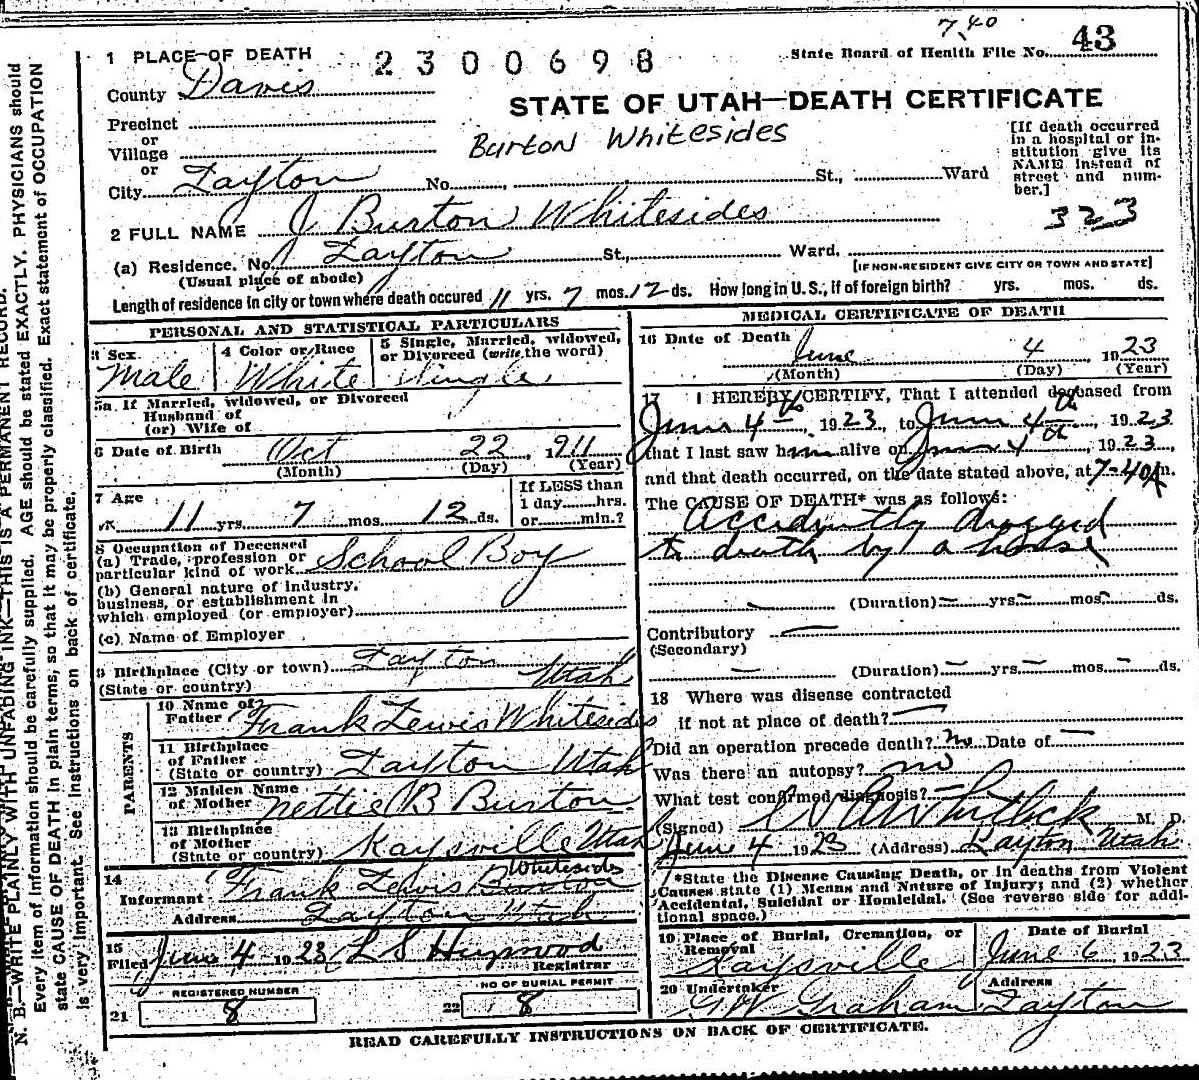 7.40
State Board of Health File No. 43
1 PLACE OF DEATH
2300698
County Davis
STATE OF UTAH—DEATH CERTIFICATE
Precinct
or
Village
or
City Layton No. St., Ward
Burton Whitesides
[If death occurred
in a hospital or in-
stitution give its
NAME instead of
street and num-
ber.]
323
2 FULL NAME J Burton Whitesides
(a) Residence. No. Layton St., Ward.
(Usual place of abode)
[IF NON-RESIDENT GIVE CITY OR TOWN AND STATE]
Length of residence in city or town where death occured 11 yrs. 7 mos. 12 ds. How long in U. S., if of foreign birth? yrs. mos. ds.
PERSONAL AND STATISTICAL PARTICULARS
3 Sex
Male
4 Color or Race
White
5 Single, Married, widowed,
or Divorced (write the word)
Single
5a If Married, widowed, or Divorced
Husband of
(or) Wife of
6 Date of Birth Oct 22, 1911
(Month) (Day) (Year)
7 Age
11 yrs. 7 mos. 12 ds.
If LESS than
1 day......hrs.
or......min.?
8 Occupation of Deceased
(a) Trade, profession or
particular kind of work School Boy
(b) General nature of industry,
business, or establishment in
which employed (or employer)
(c) Name of Employer
9 Birthplace (City or town) Layton
(State or country) Utah
PARENTS
10 Name of
Father Frank Lewis Whitesides
11 Birthplace
of Father
(State or country) Layton Utah
12 Maiden Name
of Mother Nettie B Burton
13 Birthplace
of Mother
(State or country) Kaysville Utah
14
Whitesides
Informant Frank Lewis Burton
Address Layton Utah
15
Filed June 4 1923 L S Heywood
Registrar
REGISTERED NUMBER
21 8
NO OF BURIAL PERMIT
22 8
MEDICAL CERTIFICATE OF DEATH
16 Date of Death
June 4, 1923
(Month) (Day) (Year)
17 I HEREBY CERTIFY, That I attended deceased from
June 4th, 1923, to June 4th, 1923
that I last saw him alive on June 4th, 1923,
and that death occurred, on the date stated above, at 7-40A m.
The CAUSE OF DEATH* was as follows:
Accidently dragged
to death by a horse
(Duration) yrs. mos. ds.
Contributory
(Secondary)
(Duration) yrs. mos. ds.
18 Where was disease contracted
if not at place of death?
Did an operation precede death? No Date of
Was there an autopsy? no
What test confirmed diagnosis?
(Signed) Whitlock M. D.
June 4 1923 (Address) Layton Utah
*State the Disease Causing Death, or in deaths from Violent
Causes state (1) Means and Nature of Injury; and (2) whether
Accidental, Suicidal or Homicidal. (See reverse side for addi-
tional space.)
19 Place of Burial, Cremation, or
Removal
Kaysville
Date of Burial
June 6, 1923
20 Undertaker
G W Graham
Address
Layton
READ CAREFULLY INSTRUCTIONS ON BACK OF CERTIFICATE.
N. B.—WRITE PLAINLY WITH UNFADING INK—THIS IS A PERMANENT RECORD.
Every item of information should be carefully supplied. AGE should be stated EXACTLY. PHYSICIANS should
state CAUSE OF DEATH in plain terms, so that it may be properly classified. Exact statement of OCCUPATION
is very important. See instructions on back of certificate.